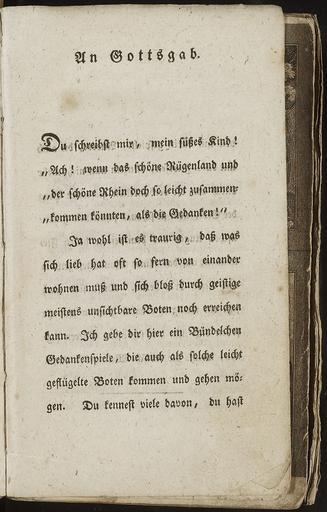 An Gottsgab.
Du schreibst mir, mein süßes Kind!
„Ach! wenn das schöne Rügenland und
„der schöne Rhein doch so leicht zusammen-
„kommen könnten, als die Gedanken!“
Ja wohl ist es traurig, daß was
sich lieb hat oft so fern von einander
wohnen muß und sich bloß durch geistige
meistens unsichtbare Boten noch erreichen
kann. Ich gebe dir hier ein Bündelchen
Gedankenspiele, die auch als solche leicht
geflügelte Boten kommen und gehen mö-
gen. Du kennest viele davon, du hast